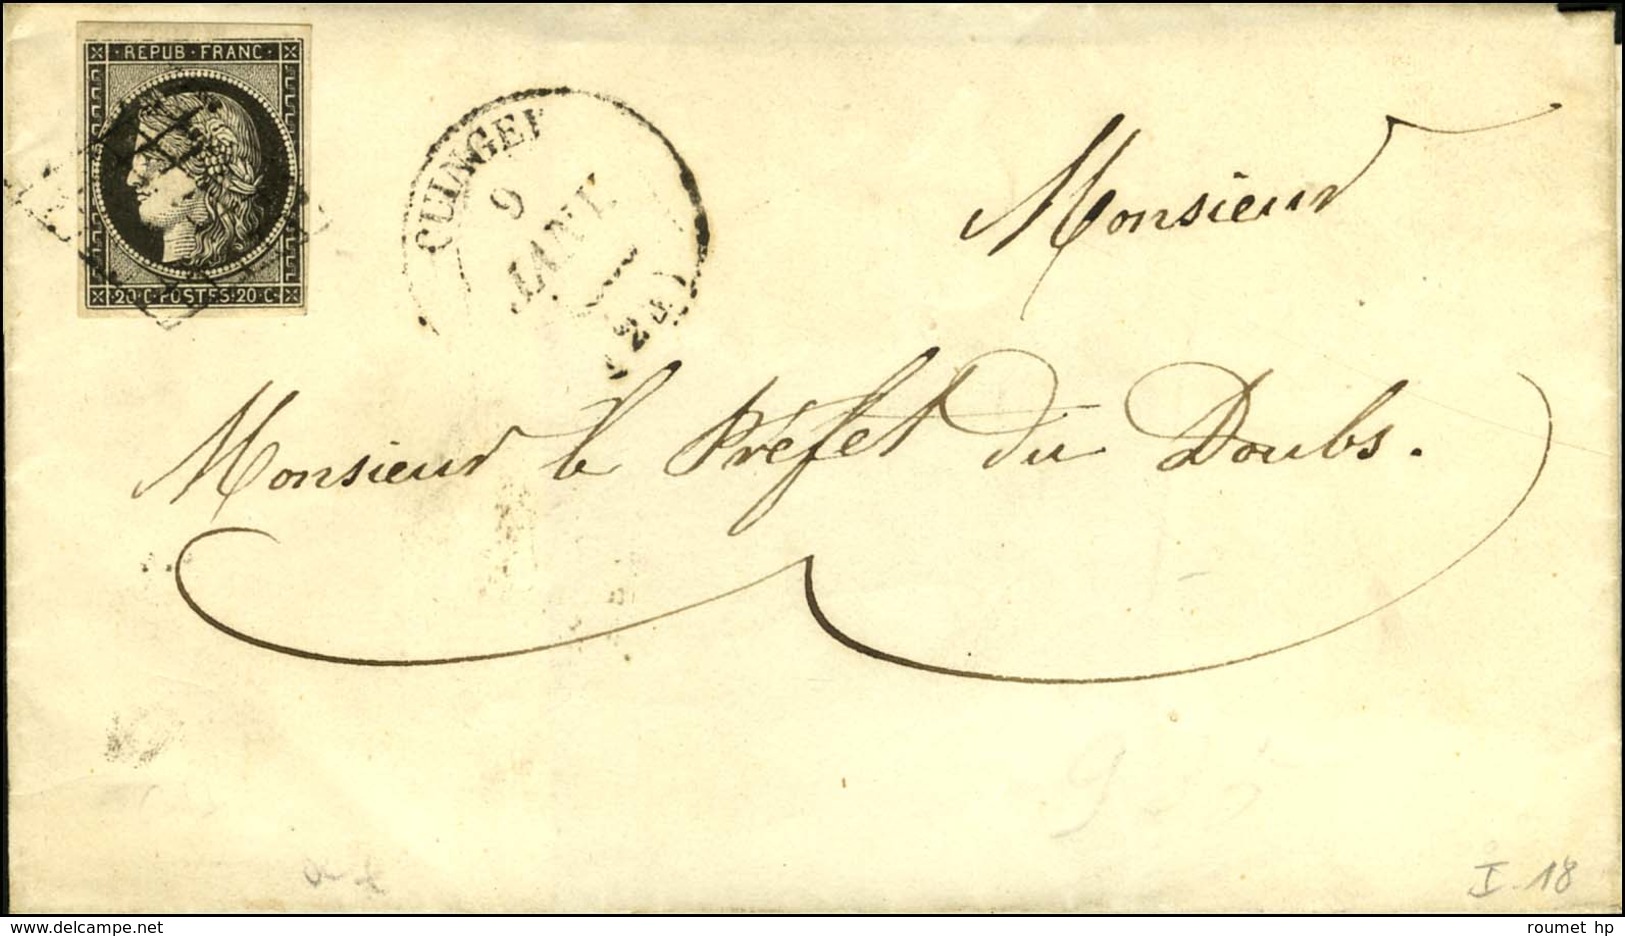 REPUB · FRANC ·
20 · C · POSTES · 20 · C ·
QUINGEY
9
JANV.
(24)
Monsieur
Monsieur le Préfet du Doubs.
I. 18
roumet hp